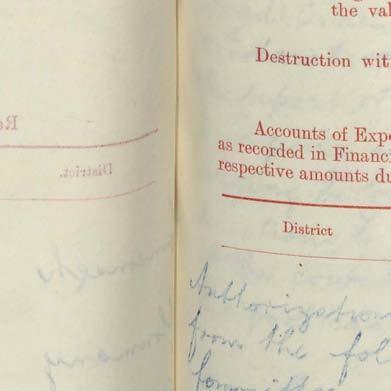 the val
Destruction wit
Accounts of Expe
as recorded in Financi
respective amounts du
District
Authorization
from the fol
Committee
Re
District.